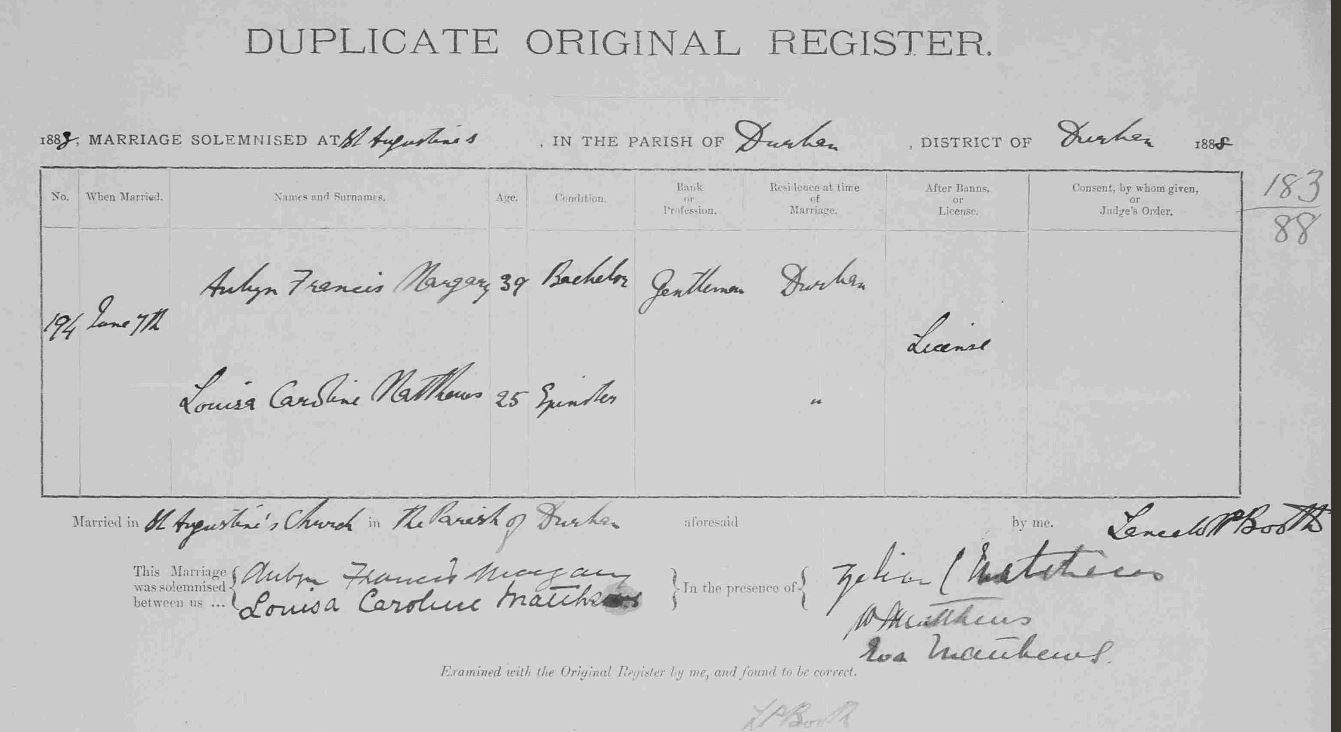 DUPLICATE ORIGINAL REGISTER.
1888, MARRIAGE SOLEMNISED AT St Augustine's, IN THE PARISH OF Durban, DISTRICT OF Durban 1888
No. When Married. Names and Surnames. Age. Condition. Rank or Profession. Residence at time of Marriage. After Banns, or License. Consent, by whom given, or Judge's Order.
183
88
Aubyn Francis Margary 39 Bachelor Gentleman Durban
194 June 7th
License
Louisa Caroline Matthews 25 Spinster "
Married in St Augustine's Church in the Parish of Durban aforesaid by me. Lancelot P Booth
This Marriage was solemnised between us ... Aubyn Francis Margary
Louisa Caroline Matthews
In the presence of Matthews
W Matthews
Eva Matthews.
Examined with the Original Register by me, and found to be correct.
L P Booth